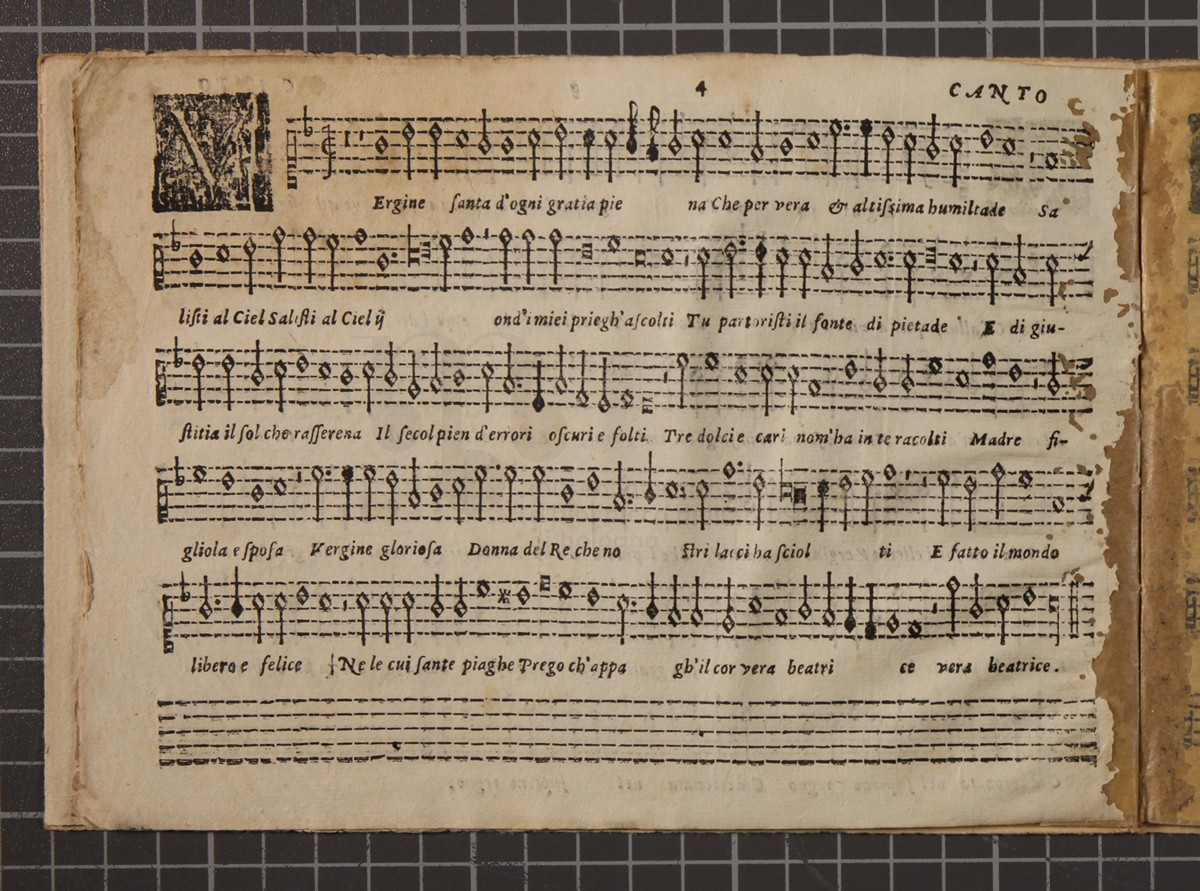 4
CANTO
V Ergine ſanta d'ogni gratia pie na Che per vera & altiſsima humiltade Sa
liſti al Ciel Saliſti al Ciel ij ond'i miei priegh'aſcolti Tu partoriſti il fonte di pietade E di giu-
ſtitia il ſol che raſſerena Il ſecol pien d'errori oſcuri e folti Tre dolci e cari nom'ha in te racolti Madre fi-
gliola e ſpoſa Vergine glorioſa Donna del Re che no ſtri lacci ha ſciol ti E fatto il mondo
libero e felice Ne le cui ſante piaghe Prego ch'appa gh'il cor vera beatri ce vera beatrice.